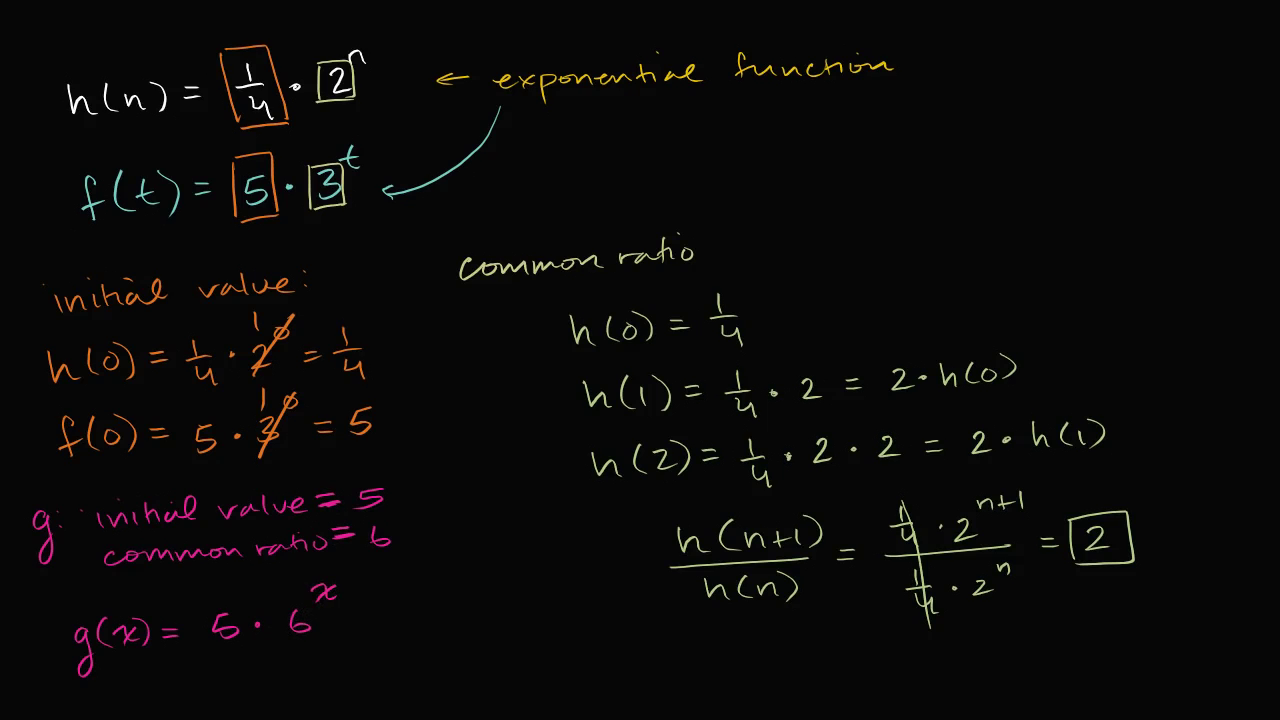 h(n) = 1/4 · 2^n ← exponential function
f(t) = 5 · 3^t
initial value:
h(0) = 1/4 · 2^0 1 = 1/4
f(0) = 5 · 3^0 1 = 5
g: initial value = 5
common ratio = 6
g(x) = 5 · 6^x
common ratio
h(0) = 1/4
h(1) = 1/4 · 2 = 2 · h(0)
h(2) = 1/4 · 2 · 2 = 2 · h(1)
h(n+1)/h(n) = (1/4 · 2^(n+1))/(1/4 · 2^n) = 2